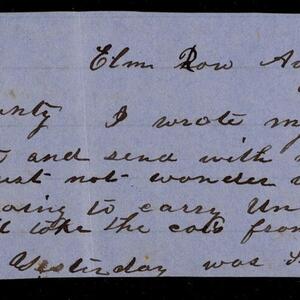 Elm Row Au
unty I wrote my
and send with
ust not wonder
going to carry Un
take the cars from
Yesterday was